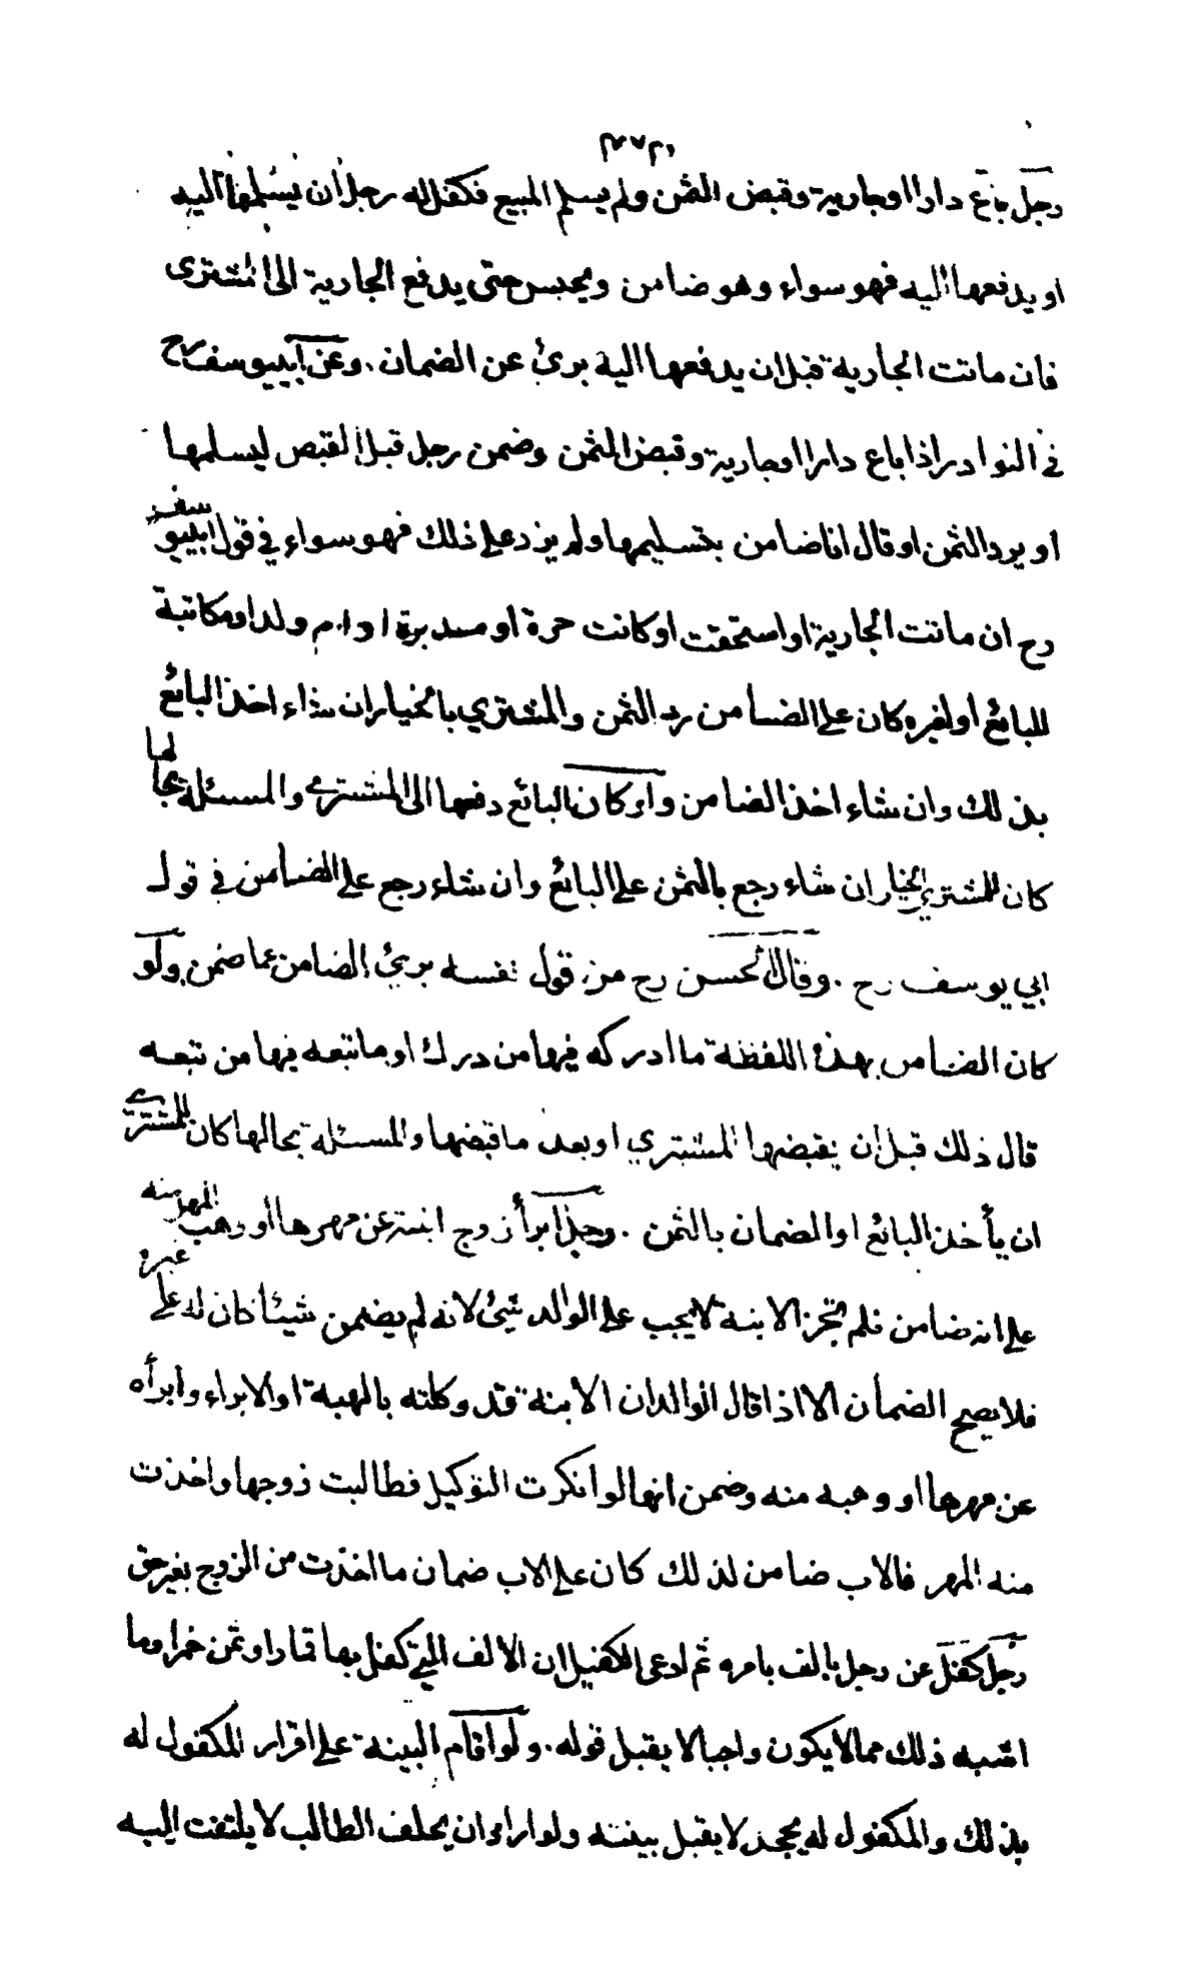 رجل باع دارا او جارية وقبض الثمن ولم يسلم المبيع فكفل له رجل ان يسلمها اليه
او يدفعها اليه فهو سواء وهو ضامن ويحبس حتى يدفع الجارية الى المشترى
فان ماتت الجارية قبل ان يدفعها اليه برئ عن الضمان . وعن ابييوسف رح
في النوادر اذا باع دارا او جارية وقبض الثمن وضمن رجل قبل القبض ليسلمها
او يرد الثمن او قال انا ضامن بتسليمها ولم يزد على ذلك فهو سواء في قول ابييوسف
رح ان ماتت الجارية او استحقت او كانت حرة او مدبرة او ام ولد او مكاتبة
للبائع او لغيره كان على الضامن رد الثمن والمشتري بالخيار ان شاء اخذ البائع
بذلك وان شاء اخذ الضامن ولو كان البائع دفعها الى المشترى والمسئلة بحالها
كان للمشتري الخيار ان شاء رجع بالثمن على البائع وان شاء رجع على الضامن في قول
ابي يوسف رح . وقال الحسن رح من قول نفسه برئ الضامن عما ضمن ولو
كان الضامن بهذه اللفظة ما ادركه فيها من درك او ما تبعه فيها من تبعه
قال ذلك قبل ان يقبضها المشتري او بعد ما قبضها والمسئلة بحالها كان للمشترى
ان يأخذ البائع او الضمان بالثمن . رجل ابرأ زوج ابنته عن مهرها او وهب المهر منه
على انه ضامن فلم تجز الابنة لا يجب على الوالد شئ لانه لم يضمن شيئا كان له على غيره
فلا يصح الضمان الا اذا قال الوالد ان الابنة قد وكلته بالهبة او الابراء وابرأه
عن مهرها او وهبه منه وضمن انها لو انكرت التوكيل فطالبت زوجها واخذت
منه المهر فالاب ضامن لذلك كان على الاب ضمان ما اخذت من الزوج بغير حق
رجل كفل عن رجل بالف بامره ثم ادعى الكفيل ان الالف التي كفل بها قمار او ثمن خمر او ما
اشبه ذلك مما لا يكون واجبا لا يقبل قوله . ولو اقام البينة على اقرار المكفول له
بذلك والمكفول له يجحد لا يقبل بينته ولو اراد ان يحلف الطالب لا يلتفت اليه